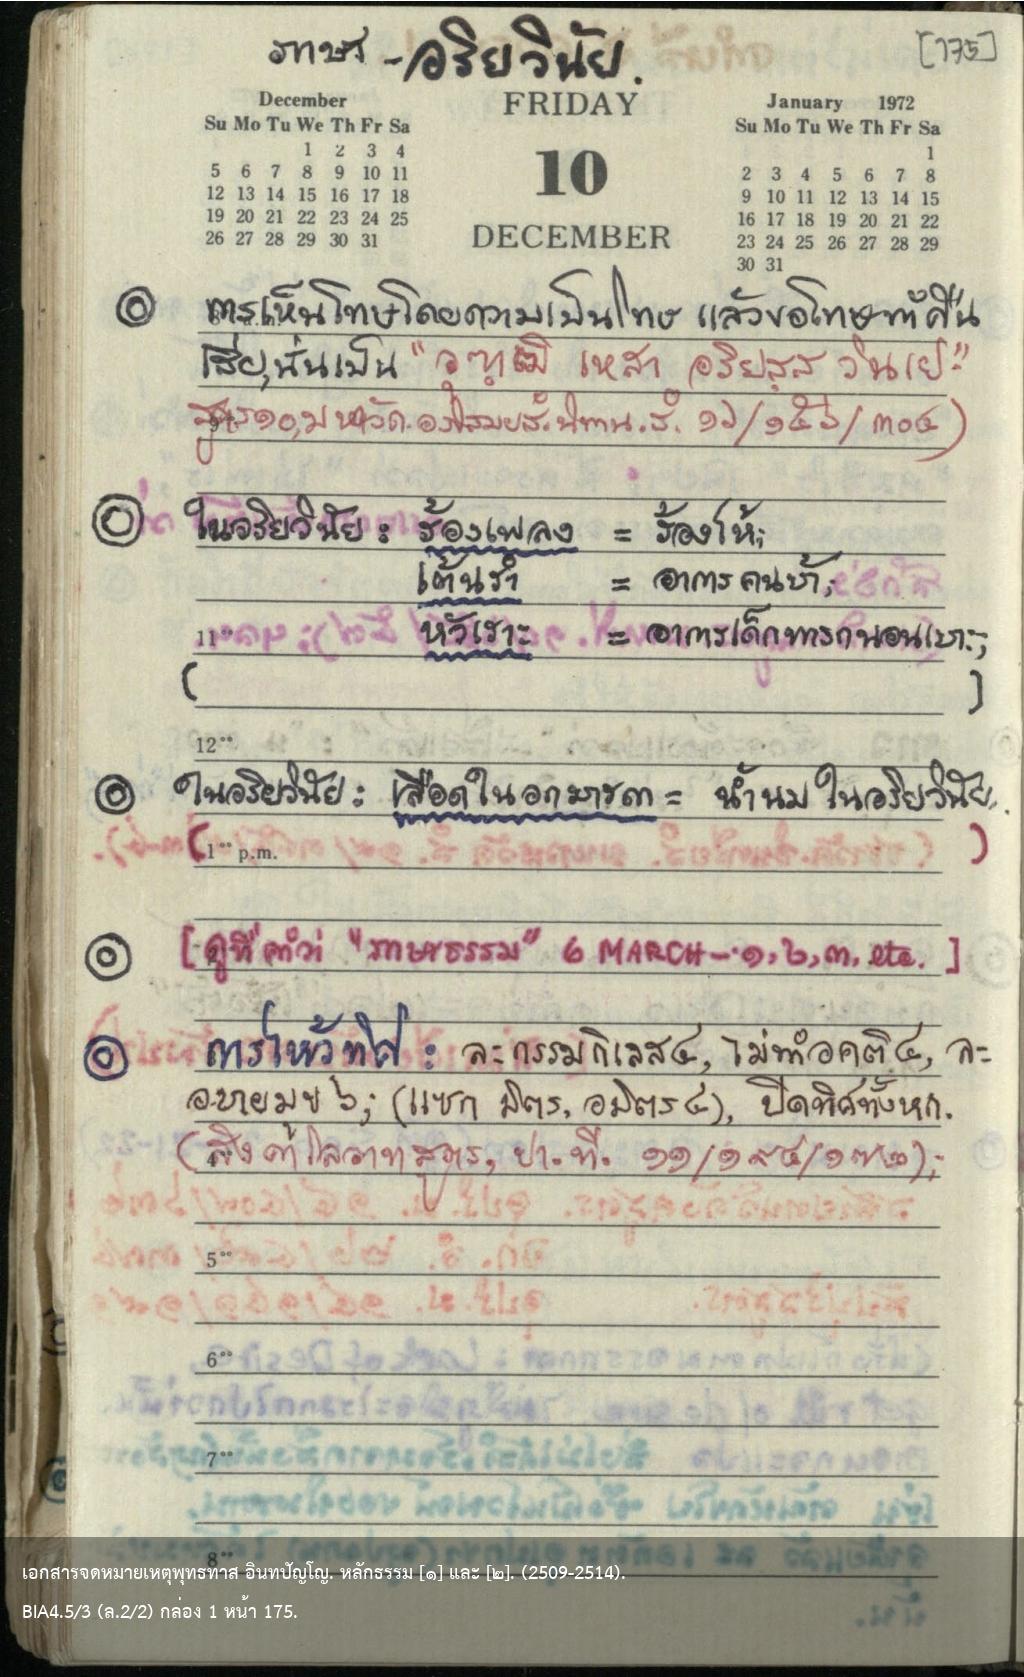 ภาษา - อริยวินัย. [175]
December FRIDAY January 1972
Su Mo Tu We Th Fr Sa Su Mo Tu We Th Fr Sa
1 2 3 4 1
5 6 7 8 9 10 11 10 2 3 4 5 6 7 8
12 13 14 15 16 17 18 9 10 11 12 13 14 15
19 20 21 22 23 24 25 16 17 18 19 20 21 22
26 27 28 29 30 31 DECEMBER 23 24 25 26 27 28 29
30 31
การเห็นโทษโดยความเป็นโทษ แล้วขอโทษทำคืน
เสีย, นั่นเป็น " เหสา อริยสฺส วินเย"
สูตร ๑๐, มหาวัค. สํ. นิทาน. สํ. ๑๖/๑๕๖/๓๐๔)
ในอริยวินัย : ร้องเพลง = ร้องไห้;
เต้นรำ = อาการคนบ้า;
11°° หัวเราะ = อาการเด็กทารกนอนเบาะ;
( )
12°°
ในอริยวินัย : เลือดในอกมารดา = น้ำนม ในอริยวินัย.
( 1°° p.m. )
[ดูที่คำว่า "ภาษาธรรม" 6 MARCH – ๑, ๒, ๓. etc. ]
การไหว้ทิศ : ละกรรมกิเลส ๔, ไม่ทำอคติ ๔, ละ
อบายมุข ๖; (แซก มิตร, อมิตร ๔), ปิดทิศทั้งหก.
(สิงคาโลวาทสูตร, ปา. ที. ๑๑/๑๙๔/๑๗๒);
5°°
6°°
7°°
8°°
เอกสารจดหมายเหตุพุทธทาส อินทปัญโญ. หลักธรรม [๑] และ [๒]. (2509-2514).
BIA4.5/3 (ล.2/2) กล่อง 1 หน้า 175.